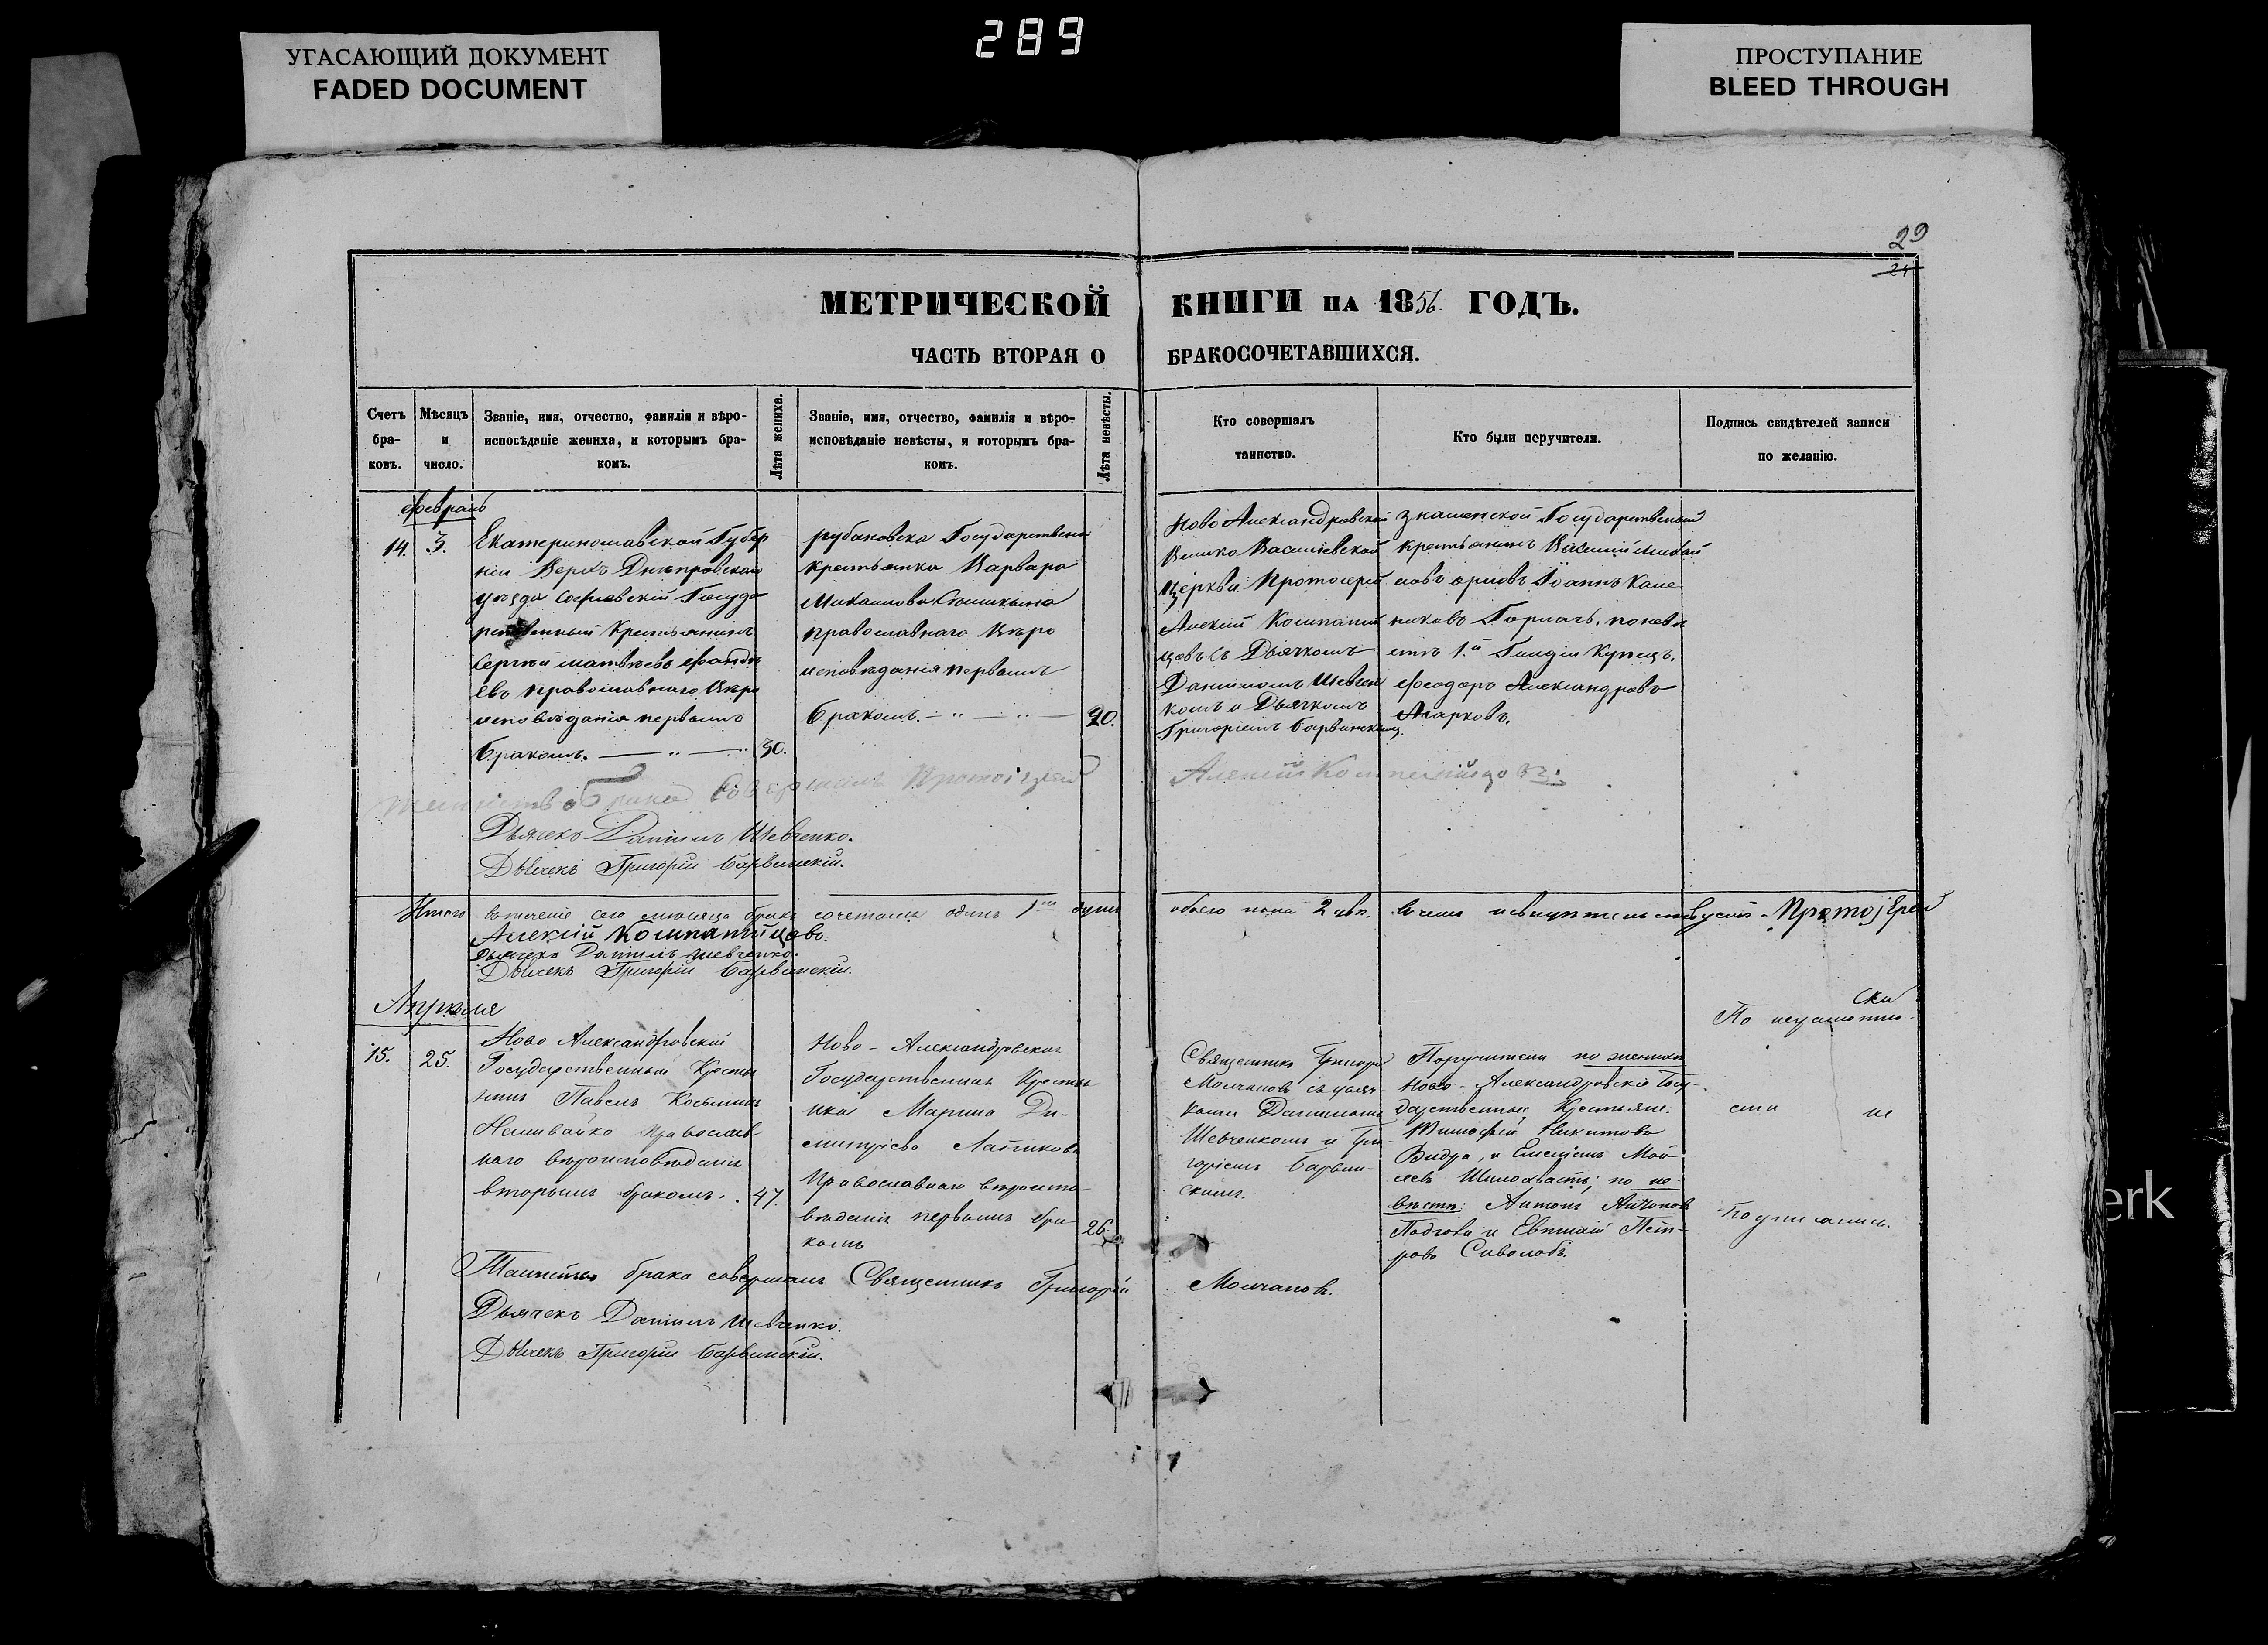 УГАСАЮЩИЙ ДОКУМЕНТ
FADED DOCUMENT
289
ПРОСТУПАНИЕ
BLEED THROUGH
29
24
МЕТРИЧЕСКОЙ КНИГИ на 1856 ГОДЪ.
ЧАСТЬ ВТОРАЯ О БРАКОСОЧЕТАВШИХСЯ.
Счетъ
бра-
ковъ.
Мѣсяцъ
и
число.
Званіе, имя, отчество, фамилія и вѣро-
исповѣданіе жениха, и которымъ бра-
комъ.
Лѣта жениха.
Званіе, имя, отчество, фамилія и вѣро-
исповѣданіе невѣсты, и которымъ бра-
комъ.
Лѣта невѣсты.
Кто совершалъ
таинство.
Кто были поручители.
Подпись свидѣтелей записи
по желанію.
Февраль
14. 3.
Екатеринославской Губер
ніи Верхъ Днѣпровскаго
уѣзда Софіевскій Госуда
рственный Крестьянинъ
Сергѣй Матвѣевъ
евъ православнаго Вѣро
исповѣданія первымъ
бракомъ. 30.
рубановска Государственна
крестьянка Варвара
Михаилова
православнаго Вѣро
исповѣданія первымъ
бракомъ. 20.
Ново Александровской
Велико Васильевской
Церкви Протоіерей
Алексій Компаній
цовъ съ Дьячкомъ
Даніиломъ Шевчен
комъ и Дьячкомъ
Григоріемъ Барвинскимъ.
знаменской Государственный
крестьянинъ Василій Михай
ловъ Орловъ Іоаннъ Кале
никовъ Горкачъ, по невѣ
стѣ 1.й Гильдіи Купецъ,
Феодоръ Александровъ
Марковъ.
Таинство брака совершалъ Протоіерей Алексій Компанійцовъ.
Дьячекъ Даніилъ Шевченко.
Дьячекъ Григорій Барвинскій.
Итого въ теченіе сего мѣсяца бракъ сочетался одинъ 1 душъ обоего пола 2
Протоіерей
Алексій Компанійцовъ.
Дьячекъ Даніилъ Шевченко.
Дьячекъ Григорій Барвинскій.
Апрѣля
15. 25.
Ново Александровскій
Государственный Крестья-
нинъ Павелъ Косьминъ
Наливайко православ
наго вѣроисповѣданія
вторымъ бракомъ. 47.
Ново-Александровская
Государственная Крестья
нка Марина Ди-
митріева Латикова
Православнаго вѣроиспо
вѣданія первымъ бра
комъ 26.
Священникъ Григорій
Молчановъ съ дьяч-
ками Данииломъ
Шевченкомъ и Гри-
горіемъ Барвин-
скимъ.
Поручители по женихѣ
Ново-Александровскіе Госу-
дарственные Крестьяне:
Тимофей Никитовъ
Видра, и Елисей Мой-
сеевъ Шилохвостъ; по не-
вѣстѣ: Антонъ Антоновъ
Подгова и Евтихій Пет-
ровъ Сиволобъ.
По неграмотно-
сти не
подписались.
Таинство брака совершалъ Священникъ Григорій Молчановъ.
Дьячекъ Даніилъ Шевченко.
Дьячекъ Григорій Барвинскій.
erk